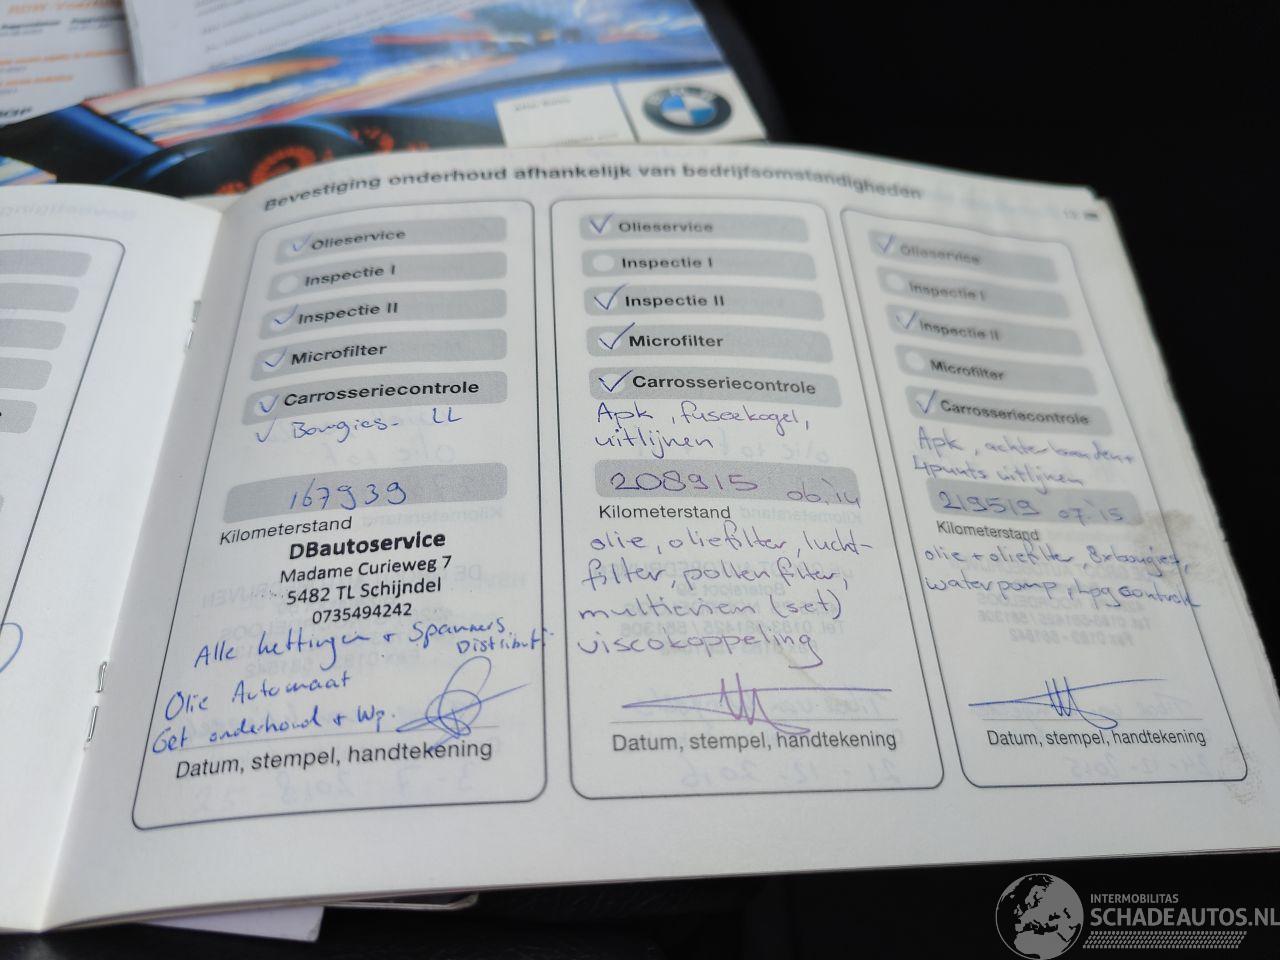 Bevestiging onderhoud afhankelijk van bedrijfsomstandigheden
Olieservice
Inspectie I
Inspectie II
Microfilter
Carrosseriecontrole
Bougies - LL
167939
Kilometerstand
DBautoservice
Madame Curieweg 7
5482 TL Schijndel
0735494242
Alle kettingen + Spanners
Distributi.
Olie Automaat
Get onderhoud + Wp.
Datum, stempel, handtekening
Olieservice
Inspectie I
Inspectie II
Microfilter
Carrosseriecontrole
Apk, fuseekogel,
uitlijnen
208915 06.'14
Kilometerstand
olie, oliefilter, lucht-
filter, pollenfilter,
multiriem (set)
viscokoppeling
Datum, stempel, handtekening
Olieservice
Inspectie I
Inspectie II
Microfilter
Carrosseriecontrole
Apk, achterbanden +
4punts uitlijnen
219519 07.'15
Kilometerstand
olie + oliefilter, 8x bougies,
waterpomp,
Datum, stempel, handtekening
INTERMOBILITAS
SCHADEAUTOS.NL